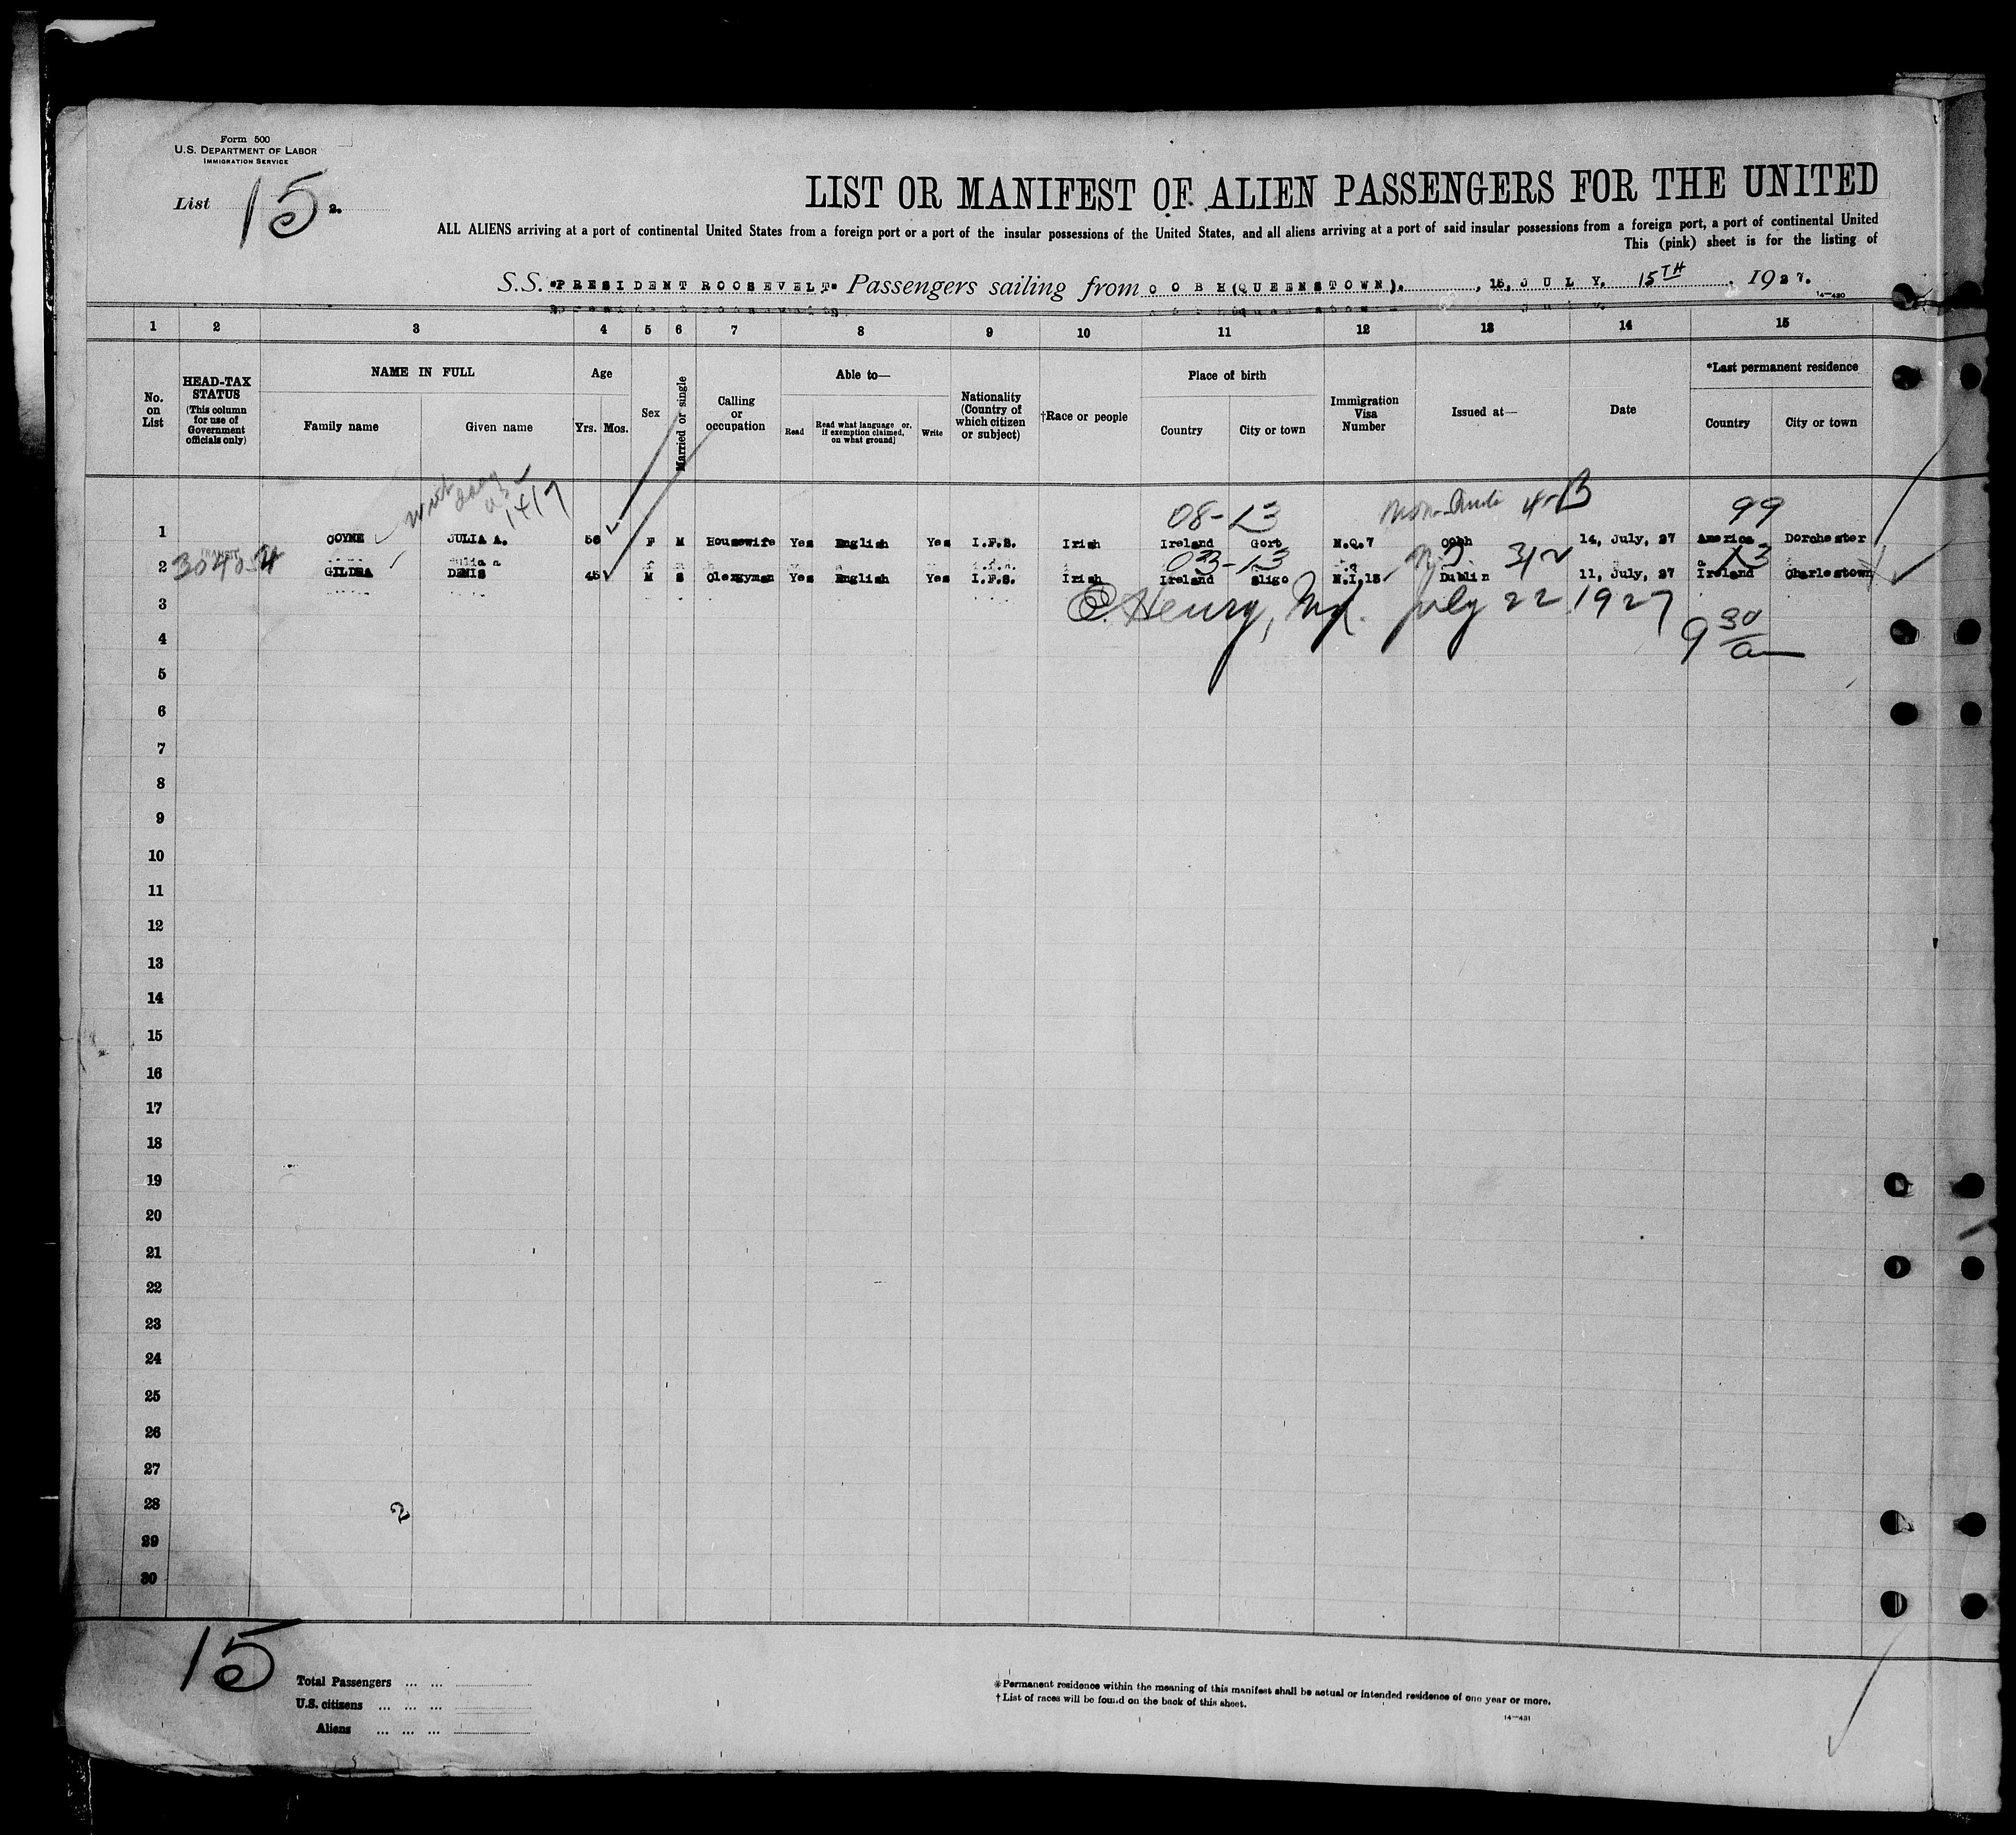 Form 500
U.S. DEPARTMENT OF LABOR
IMMIGRATION SERVICE
List 15 2.
LIST OR MANIFEST OF ALIEN PASSENGERS FOR THE UNITED
ALL ALIENS arriving at a port of continental United States from a foreign port or a port of the insular possessions of the United States, and all aliens arriving at a port of said insular possessions from a foreign port, a port of continental United
This (pink) sheet is for the listing of
S.S. "PRESIDENT ROOSEVELT" Passengers sailing from COBH (QUEENSTOWN). , 15, JULY, 15TH , 1927.
14—430
1 2 3 4 5 6 7 8 9 10 11 12 13 14 15
No. on List
HEAD-TAX STATUS (This column for use of Government officials only)
NAME IN FULL
Family name Given name
Age
Yrs. Mos.
Sex
Married or single
Calling or occupation
Able to—
Read Read what language or, if exemption claimed, on what ground] Write
Nationality (Country of which citizen or subject)
†Race or people
Place of birth
Country City or town
Immigration Visa Number
Issued at—
Date
*Last permanent residence
Country City or town
08-13 4-B 99
1 COYNE JULIA A. 56 F M Housewife Yes English Yes I.F.S. Irish Ireland Gort N.Q.7 Cobh 14, July, 27 America Dorchester
03-13 3/2 13
2 TRANSIT GILDEA DENIS 45 M S Clergyman Yes English Yes I.F.S. Irish Ireland Sligo N.I.15 Dublin 11, July, 27 Ireland Charlestown
3 Henry, Md. July 22 1927
4 9 30/am
5
6
7
8
9
10
11
12
13
14
15
16
17
18
19
20
21
22
23
24
25
26
27
28 2
29
30
15
Total Passengers ... ...
U.S. citizens ... ... ...
Aliens ... ... ...
*Permanent residence within the meaning of this manifest shall be actual or intended residence of one year or more.
†List of races will be found on the back of this sheet.
14—431